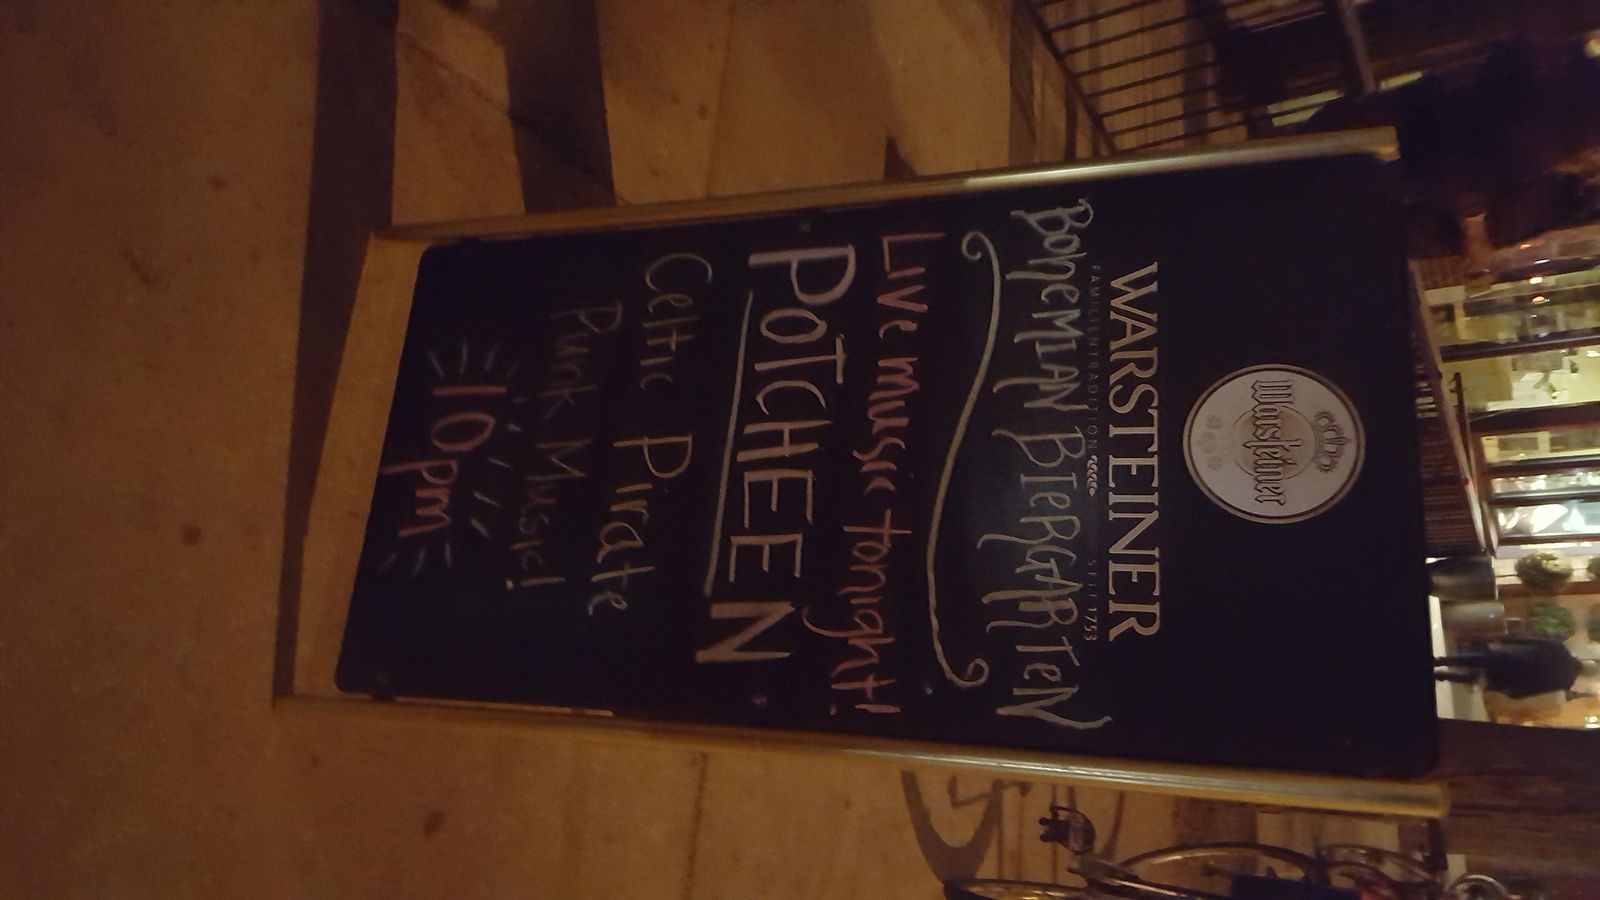 Warsteiner
WARSTEINER
FAMILIENTRADITION SEIT 1753
BOHEMIAN BIERGARTEN
Live music tonight!
POTCHEEN
Celtic Pirate
Punk Music!
10pm